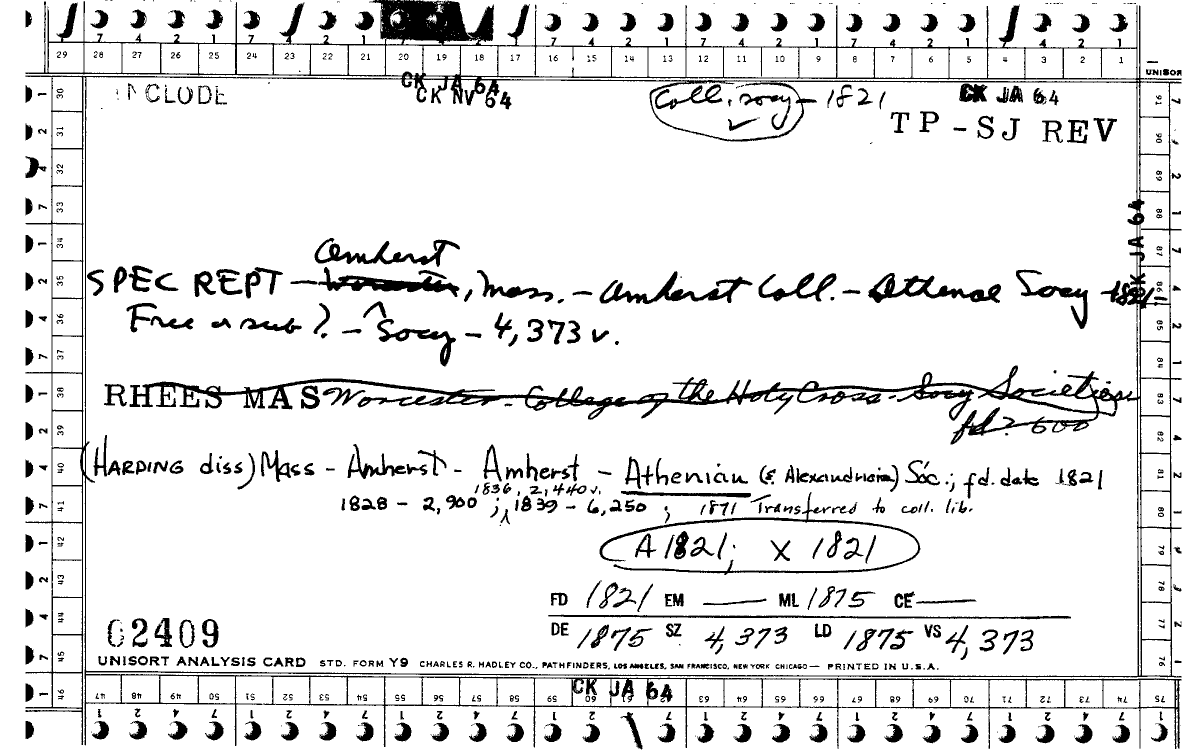 7 4 2 1 7 4 2 1 7 4 2 1 7 4 2 1 7 4 2 1 7 4 2 1 7 4 2 1
29 28 27 26 25 24 23 22 21 20 19 18 17 16 15 14 13 12 11 10 9 8 7 6 5 4 3 2 1
UNISOR
INCLUDE
CK JA 64
CK NV 64
Coll. socy - 1821
CK JA 64
TP-SJ REV
CK JA 64
Amherst
SPEC REPT - Worcester, Mass. - Amherst Coll. - Athenae Socy - 1821;
Free or sub? - ^Socy - 4,373 v.
RHEES MAS Worcester - College of the Holy Cross - Socy Societies
fd? 600
(HARDING diss) Mass - Amherst - Amherst - Athenian (& Alexandrian) Soc.; fd. date 1821
1836, 2,440 v.
1828 - 2,900 ; 1839 - 6,250 ; 1871 Transferred to coll. lib.
A 1821; X 1821
FD 1821 EM — ML 1875 CE —
DE 1875 SZ 4,373 LD 1875 VS 4,373
02409
UNISORT ANALYSIS CARD STD. FORM Y9 CHARLES R. HADLEY CO., PATHFINDERS, LOS ANGELES, SAN FRANCISCO, NEW YORK CHICAGO — PRINTED IN U.S.A.
CK JA 64
30 31 32 33 34 35 36 37 38 39 40 41 42 43 44 45 46
47 48 49 50 51 52 53 54 55 56 57 58 59 60 61 62 63 64 65 66 67 68 69 70 71 72 73 74 75
76 77 78 79 80 81 82 83 84 85 86 87 88 89 90 91